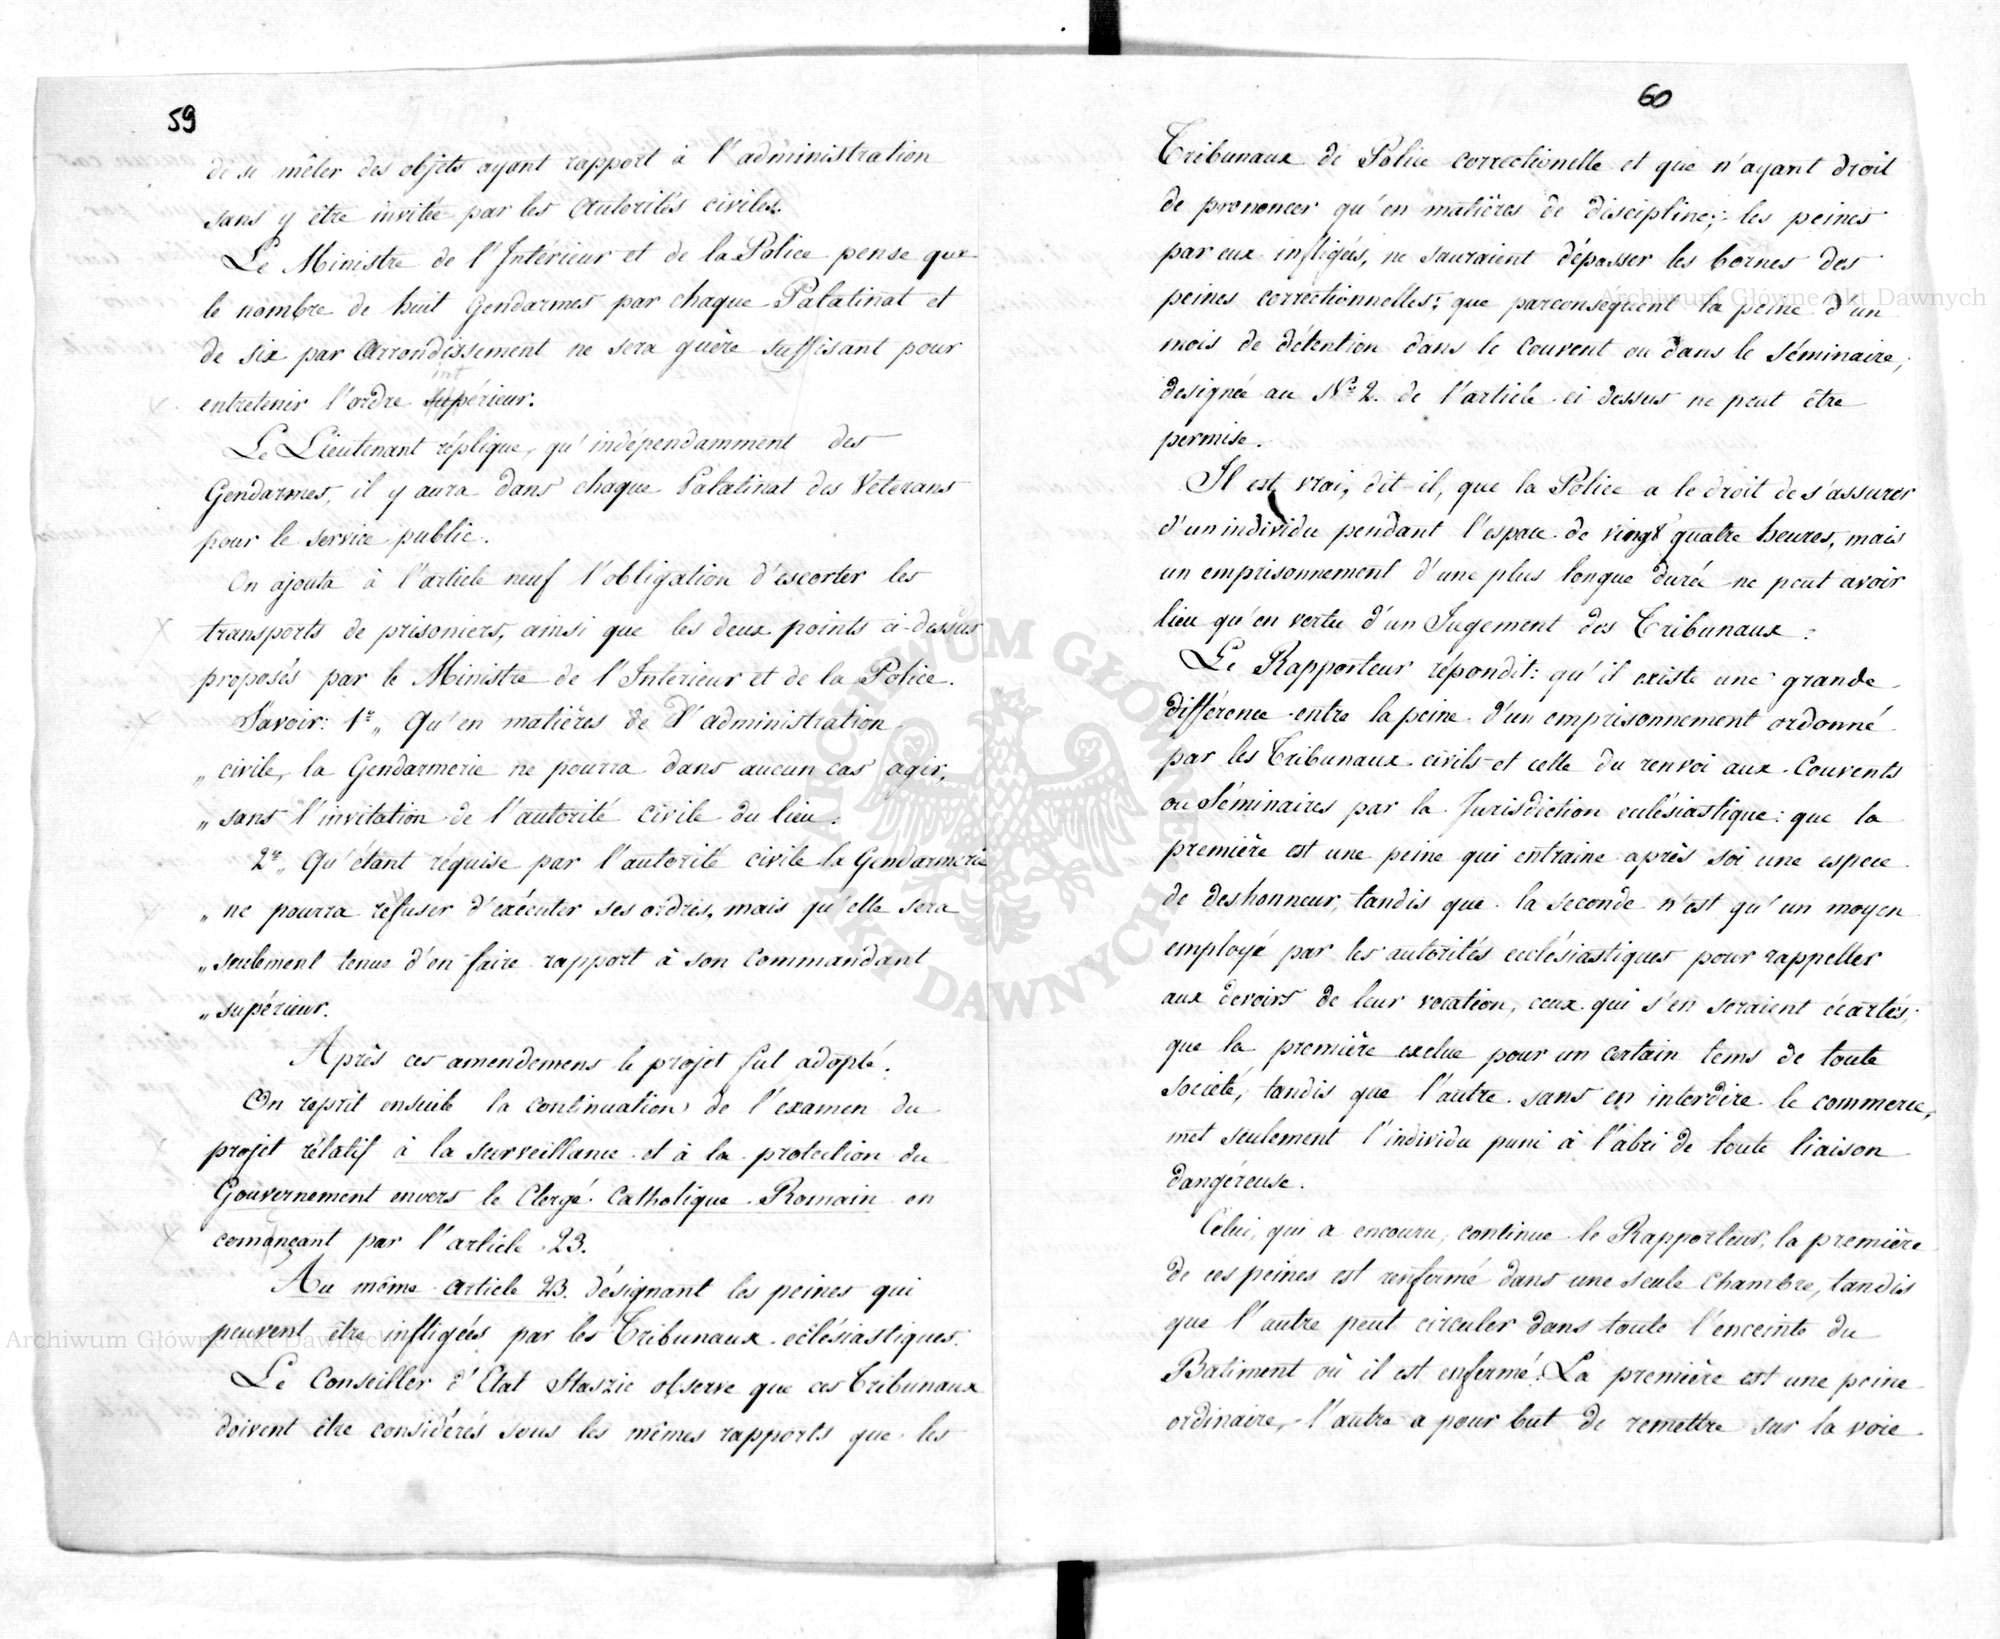 59
de se mêler des objets ayant rapport à l'administration
sans y être invitée par les Autorités civiles.
Le Ministre de l'Intérieur et de la Police pense que
le nombre de huit Gendarmes par chaque Palatinat et
de six par Arrondissement ne sera guère suffisant pour
entretenir l'ordre intérieur.
Le Lieutenant réplique, qu'indépendamment des
Gendarmes, il y aura dans chaque Palatinat des Vétérans
pour le service public.
On ajouta à l'article neuf l'obligation d'escorter les
transports de prisoniers, ainsi que les deux points ci-dessus
proposés par le Ministre de l'Interieur et de la Police.
Savoir: 1º „ Qu'en matières de l'administration
„ civile, la Gendarmerie ne pourra dans aucun cas agir,
„ sans l'invitation de l'autorité civile du lieu.
2º „ Qu'étant réquise par l'autorité civile la Gendarmerie
„ ne pourra réfuser d'exécuter ses ordres, mais qu'elle sera
„ seulement tenue d'en faire rapport à son Commandant
„ supérieur.
Après ces amendemens le projet fut adopté.
On reprit ensuite la continuation de l'examen du
projet rélatif à la surveillance et à la protection du
Gouvernement envers le Clergé Catholique Romain en
comançant par l'article 23.
Au même article 23. désignant les peines qui
peuvent être infligées par les Tribunaux eclésiastiques:
Le Conseiller d'Etat Staszic observe que ces Tribunaux
doivent être considérés sous les mêmes rapports que les
60
Tribunaux de Police correctionelle et que n'ayant droit
de prononcer qu'en matières de discipline; les peines
par eux infligées, ne sauraient dépasser les bornes des
peines correctionnelles; que parconsequent la peine d'un
mois de détention dans le Couvent ou dans le Séminaire,
designée au Nº 2. de l'article ci dessus ne peut être
permise.
Il est vrai, dit-il, que la Police a le droit de s'assurer
d'un individu pendant l'espace de vingt quatre heures, mais
un emprisonnement d'une plus longue durée ne peut avoir
lieu qu'en vertu d'un Jugement des Tribunaux.
Le Rapporteur répondit: qu'il existe une grande
différence entre la peine d'un emprisonnement ordonné
par les Tribunaux civils et celle du renvoi aux Couvents
ou Séminaires par la Jurisdiction eclésiastique: que la
première est une peine qui entraine après soi une espece
de deshonneur, tandis que la seconde n'est qu'un moyen
employé par les autorités ecclésiastiques pour rappeller
aux devoirs de leur vocation, ceux qui s'en seraient écartés;
que la première exclue pour un certain tems de toute
société, tandis que l'autre sans en interdire le commerce,
met seulement l'individu puni à l'abri de toute liaison
dangéreuse.
Celui, qui a encouru, continue le Rapporteur, la première
de ces peines est renfermé dans une seule Chambre, tandis
que l'autre peut circuler dans toute l'enceinte du
Batiment où il est enfermé. La première est une peine
ordinaire, l'autre a pour but de remettre sur la voie
Archiwum Główne Akt Dawnych
Archiwum Główne Akt Dawnych
ARCHIWUM GŁÓWNE AKT DAWNYCH